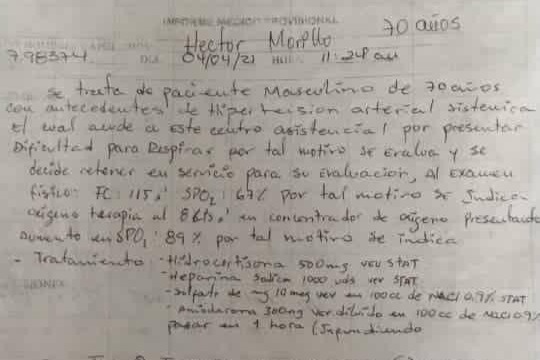 INFORME MEDICO PROVISIONAL
70 años
Hector Morillo
7.98374
DIA 04/04/21 HORA 11:24 am
se trata de paciente Masculino de 70 años
con antecedentes de Hipertension arterial sistemica
el wal aude a este centro asistencial por presentar
Dificultad para Respirar por tal motivo se Evalua y se
decide retener en servicio para su evaluacion, Al Examen
fisico: FC: 115x' SPO2: 67% por tal motivo se Indica
oxigeno terapia al 8 Lts x' en concentrador de oxigeno presentando
aumento en SPO2: 89% por tal motivo se indica
- Tratamiento - Hidrocortisona 500mg VEV STAT
- Heparina Sodica 1000 uds vev STAT
- sulfato de mg 10 meq vev en 100cc de NaCl 0.9% STAT
- Amiodarona 300mg vev diluido en 100 cc de NaCl 0.9%
pasar en 1 hora (Infundiendo